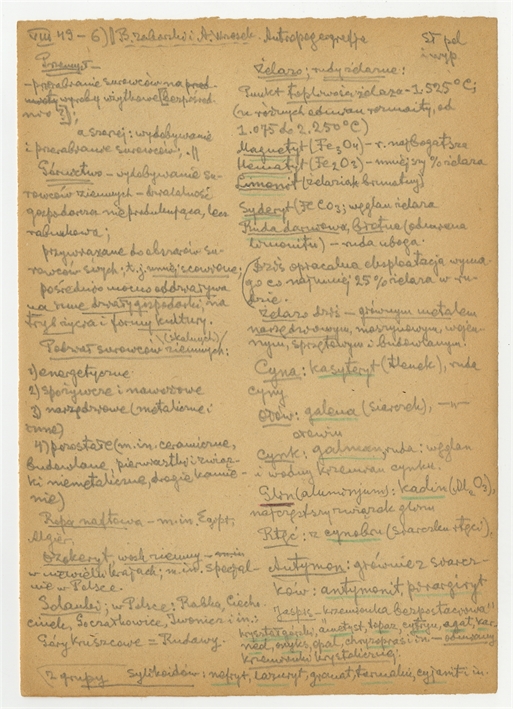 VIII 49 – 6) B. Zaborski i A. Wrzosek. Antropogeografja
Przemysł –
– przerabianie surowców na przed-
mioty wyroby użytkowe [bezpośred-
nio ?];
a szerzej: wydobywanie
i przerabianie surowców;
Górnictwo – wydobywanie su-
rowców ziemnych – działalność
gospodarcza nieprodukująca, lecz
rabunkowa;
przywiązane do obszarów su-
rowców swych; t.j. umiejscowione;
pośrednio mocno oddziaływa
na inne działy gospodarki, na
tryb życia i formy kultury.
(skalnych)
Podział surowców ziemnych:
1) energetyczne
2) spożywcze i nawozowe
3) narzędziowe (metaliczne i
inne)
4) pozostałe (m.in. ceramiczne,
budowlane, pierwiastki i związ-
ki niemetaliczne, drogie kamie-
nie)
Ropa naftowa – m.in. Egipt,
Algier.
Ozokeryt, wosk ziemny – m.in
w niewielu krajach; m.in. specjal-
nie w Polsce.
Solanki; w Polsce: Rabka, Ciecho-
cinek, Goczałkowice, Iwonicz i in.:
Góry Kruszcowe = Rudawy.
St pol
i wyp
Żelazo; rudy żelazne:
Punkt topliwości żelaza – 1.525°C;
(u różnych odmian rozmaity, od
1.075 do 2.250°C)
Magnetyt (Fe3O4) – r. najbogatsza
Hematyt (Fe2O3) – mniejszy % żelaza
Limonit (żelaziak brunatny)
Syderyt (FeCO3; węglan żelaza
Ruda darniowa, błotna (odmiana
limonitu) – ruda uboga.
(Dziś opłacalna eksploatacja wyma-
ga co najmniej 25% żelaza w ru-
dzie.
Żelazo dziś – głównym metalem
narzędziowym, maszynowym, wojen-
nym, sprzętowym i budowlanym.
Cyna: kasyteryt (tlenek), ruda
cyny
Ołów: galena (siarczek), –„–
ołowiu
Cynk: galman, ruda: węglan
i wodny krzemian cynku.
Glin (aluminjum): kaolin (Al2O3),
najczęstszy związek glinu
Rtęć: z cynobru (siarczku rtęci),
Antymon: głównie z siarcz-
ków: antymonit, pirargiryt
Jaspis – krzemionka bezpostaciowa"
kryształ górski, ametyst, topaz, cytryn, agat, kar-
neol, onyks, opal, chryzopras i in. – odmiany
krzemionki krystalicznej.
Z grupy sylikoidów: nefryt, lazuryt, granat, turmalin, cyjanit i in.